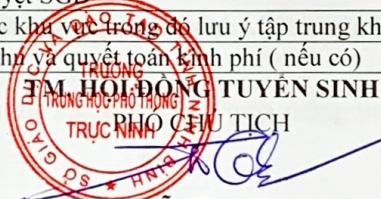 c khu vực trong đó lưu ý tập trung kh
và quyết toán kinh phí ( nếu có)
TM. HỘI ĐỒNG TUYỂN SINH
PHÓ CHỦ TỊCH
SỞ GIÁO DỤC VÀ ĐÀO TẠO TỈNH NINH BÌNH
TRƯỜNG
TRUNG HỌC PHỔ THÔNG
TRỰC NINH